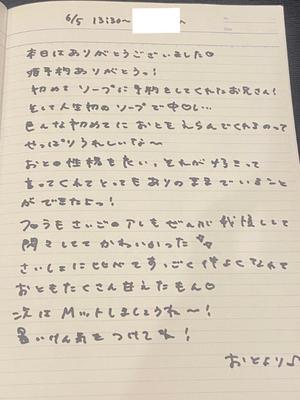 6/5 13:30〜
本日はありがとうございました♡
姫予約ありがとうっ!
初めて ソープに予約をしてくれたお兄さん!
そして人生初のソープで中〇し…
色んな初めてに おとをえらんでくれるのって
やっぱりうれしいな〜
おとの性格をたい、それがするって
言ってくれてとってもありのままでいること
ができたよっ!
フロうもさいごのアレもぜんぶ我慢しして
悶々としてて かわいかった
さいしょに比べて すっごく仲よくなれて
おともたくさん甘えたもん♡
次は Mットしましょうね〜!
暑いけん気をつけてね!
おとより♪